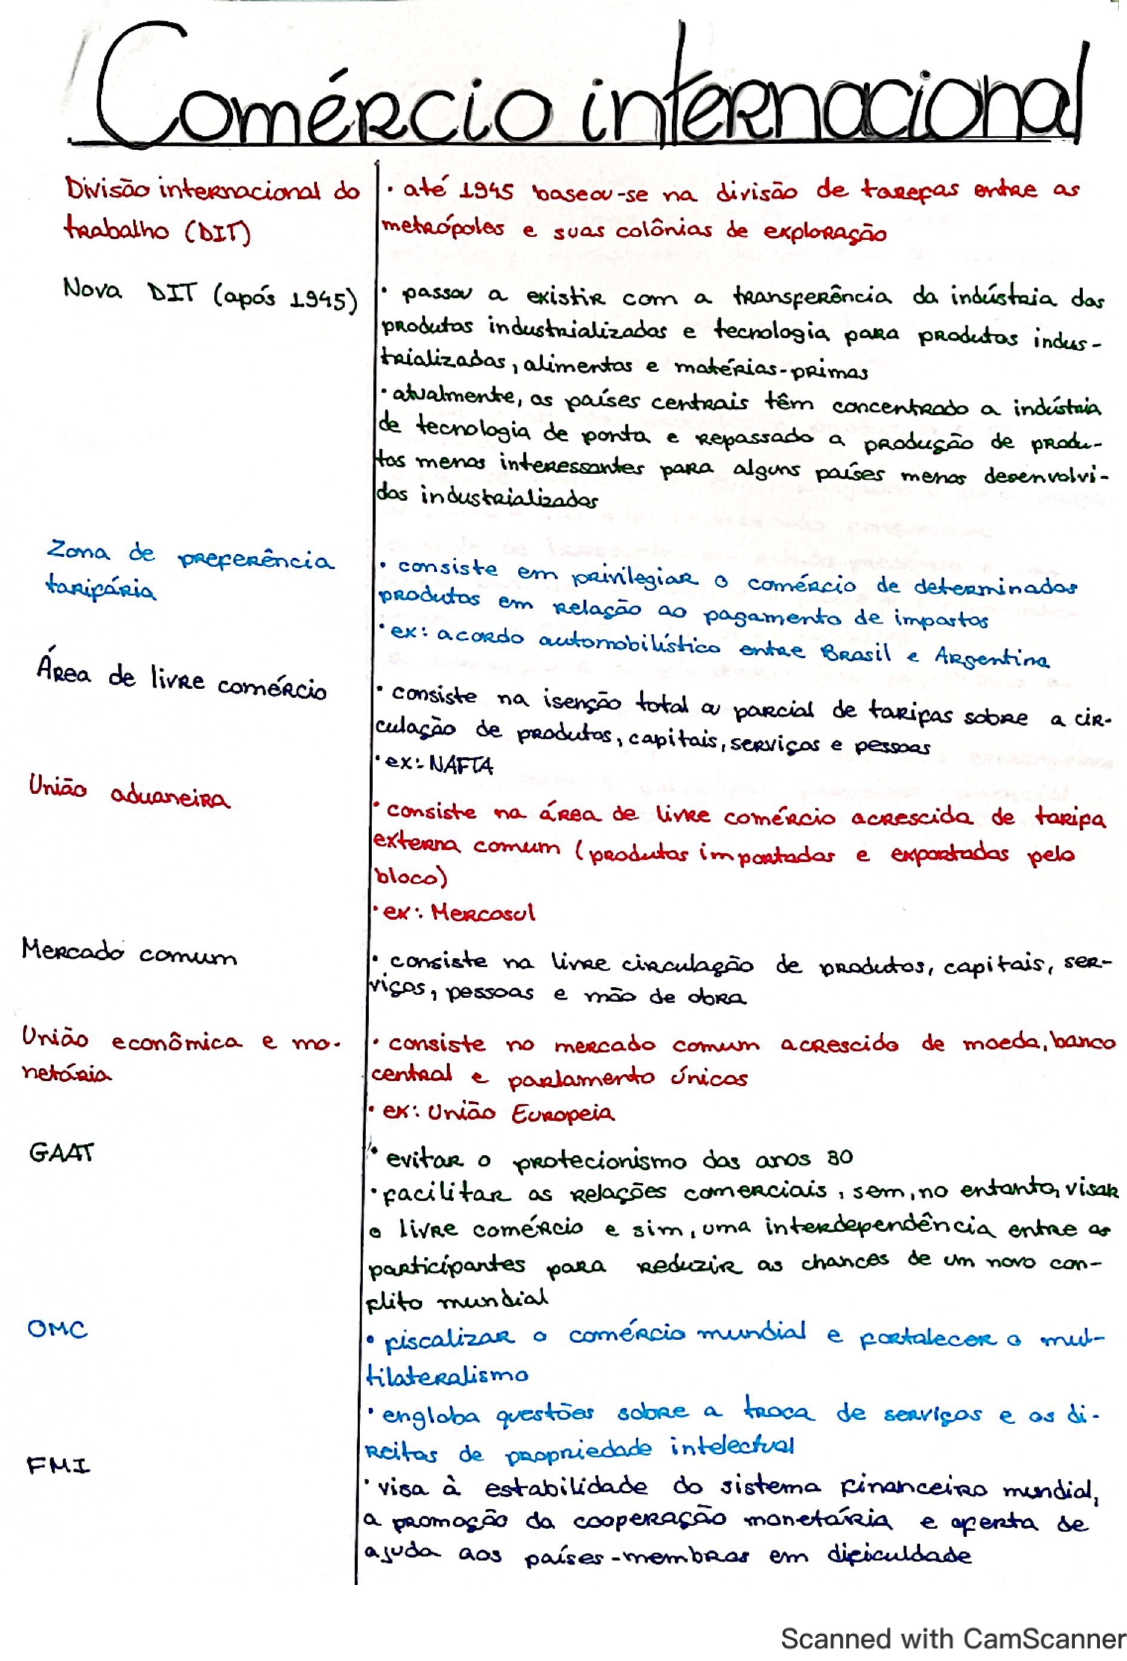 Comércio internacional
Divisão internacional do
trabalho (DIT)
• até 1945 baseou-se na divisão de tarefas entre as
metrópoles e suas colônias de exploração
Nova DIT (após 1945)
• passou a existir com a transferência da indústria dos
produtos industrializados e tecnologia para produtos indus-
trializados, alimentos e matérias-primas
• atualmente, os países centrais têm concentrado a indústria
de tecnologia de ponta e repassado a produção de produ-
tos menos interessantes para alguns países menos desenvolvi-
dos industrializados
Zona de preferência
tarifária
• consiste em privilegiar o comércio de determinados
produtos em relação ao pagamento de impostos
• ex: acordo automobilístico entre Brasil e Argentina
Área de livre comércio
• consiste na isenção total ou parcial de tarifas sobre a cir-
culação de produtos, capitais, serviços e pessoas
• ex: NAFTA
União aduaneira
• consiste na área de livre comércio acrescida de tarifa
externa comum (produtos importados e exportados pelo
bloco)
• ex: Mercosul
Mercado comum
• consiste na livre circulação de produtos, capitais, ser-
viços, pessoas e mão de obra
União econômica e mo-
netária
• consiste no mercado comum acrescido de moeda, banco
central e parlamento únicos
• ex: União Europeia
GAAT
• evitar o protecionismo dos anos 30
• facilitar as relações comerciais, sem, no entanto, visar
o livre comércio e sim, uma interdependência entre os
participantes para reduzir as chances de um novo con-
flito mundial
OMC
• fiscalizar o comércio mundial e fortalecer o mul-
tilateralismo
• engloba questões sobre a troca de serviços e os di-
reitos de propriedade intelectual
FMI
• visa à estabilidade do sistema financeiro mundial,
a promoção da cooperação monetária e oferta de
ajuda aos países-membros em dificuldade
Scanned with CamScanner